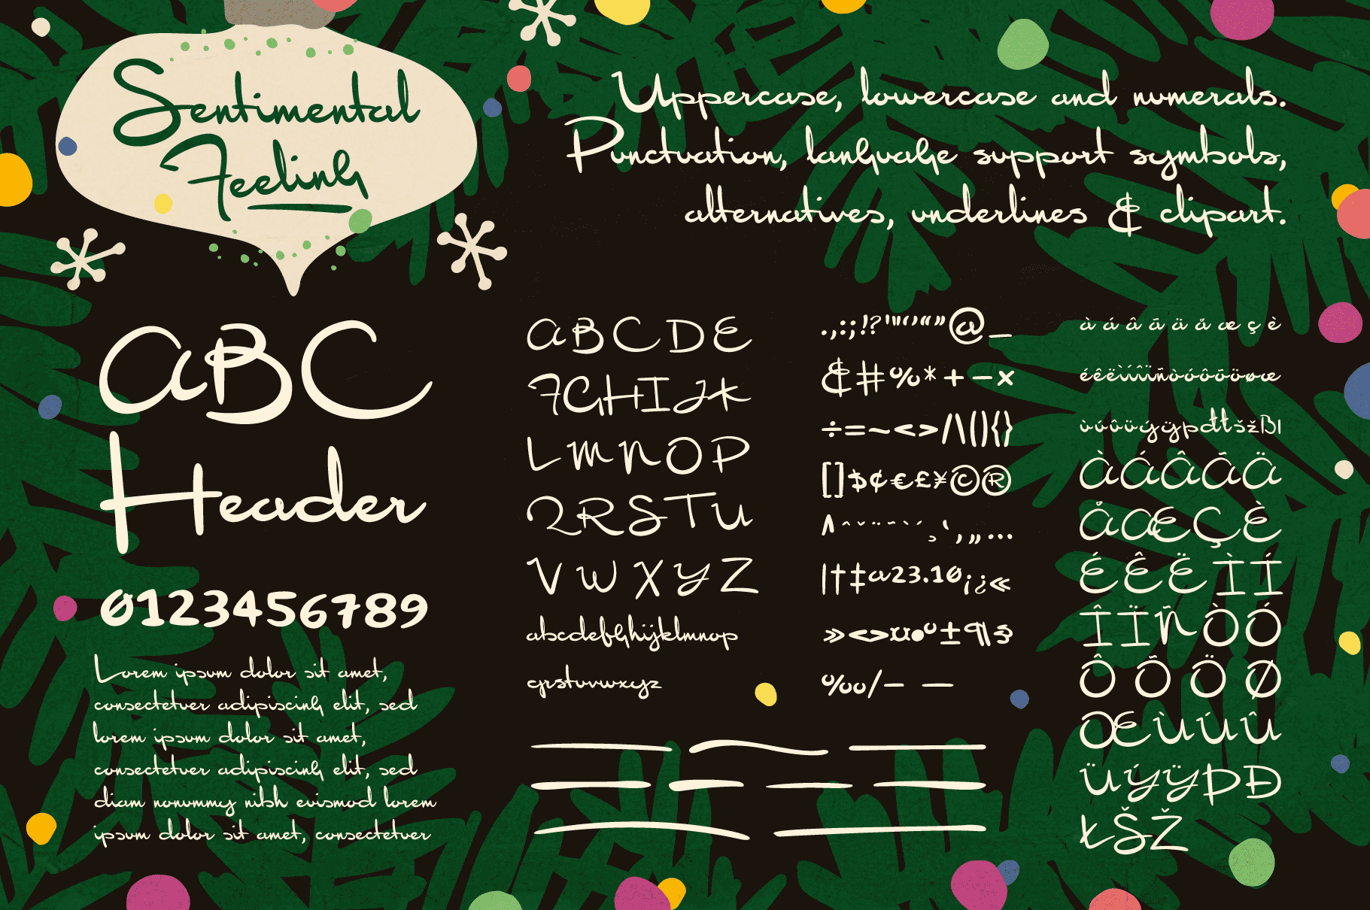 Sentimental
Feeling
Uppercase, lowercase and numerals.
Punctuation, language support symbols,
alternatives, underlines & clipart.
ABC
Header
0123456789
Lorem ipsum dolor sit amet,
consectetuer adipiscing elit, sed
lorem ipsum dolor sit amet,
consectetuer adipiscing elit, sed
diam nonummy nibh euismod lorem
ipsum dolor sit amet, consectetuer
ABCDE
FGHIJK
LMNOP
QRSTU
VWXYZ
abcdefghijklmnop
qrstuvwxyz
.,:;!?"'‘’“”@_
&#%*+−×
÷=~<>/\|(){}
[]$¢€£¥©®
|†‡a23.10¡¿«
»<>¤•º±¶§
‰/– —
àáâãäåæçè
éêëìíîïñòóôõöøœ
ùúûüýÿþđłšžßı
ÀÁÂÃÄ
ÅÆÇÈ
ÉÊËÌÍ
ÎÏÑÒÓ
ÔÕÖØ
ŒÙÚÛ
ÜÝŸÞĐ
ŁŠŽ